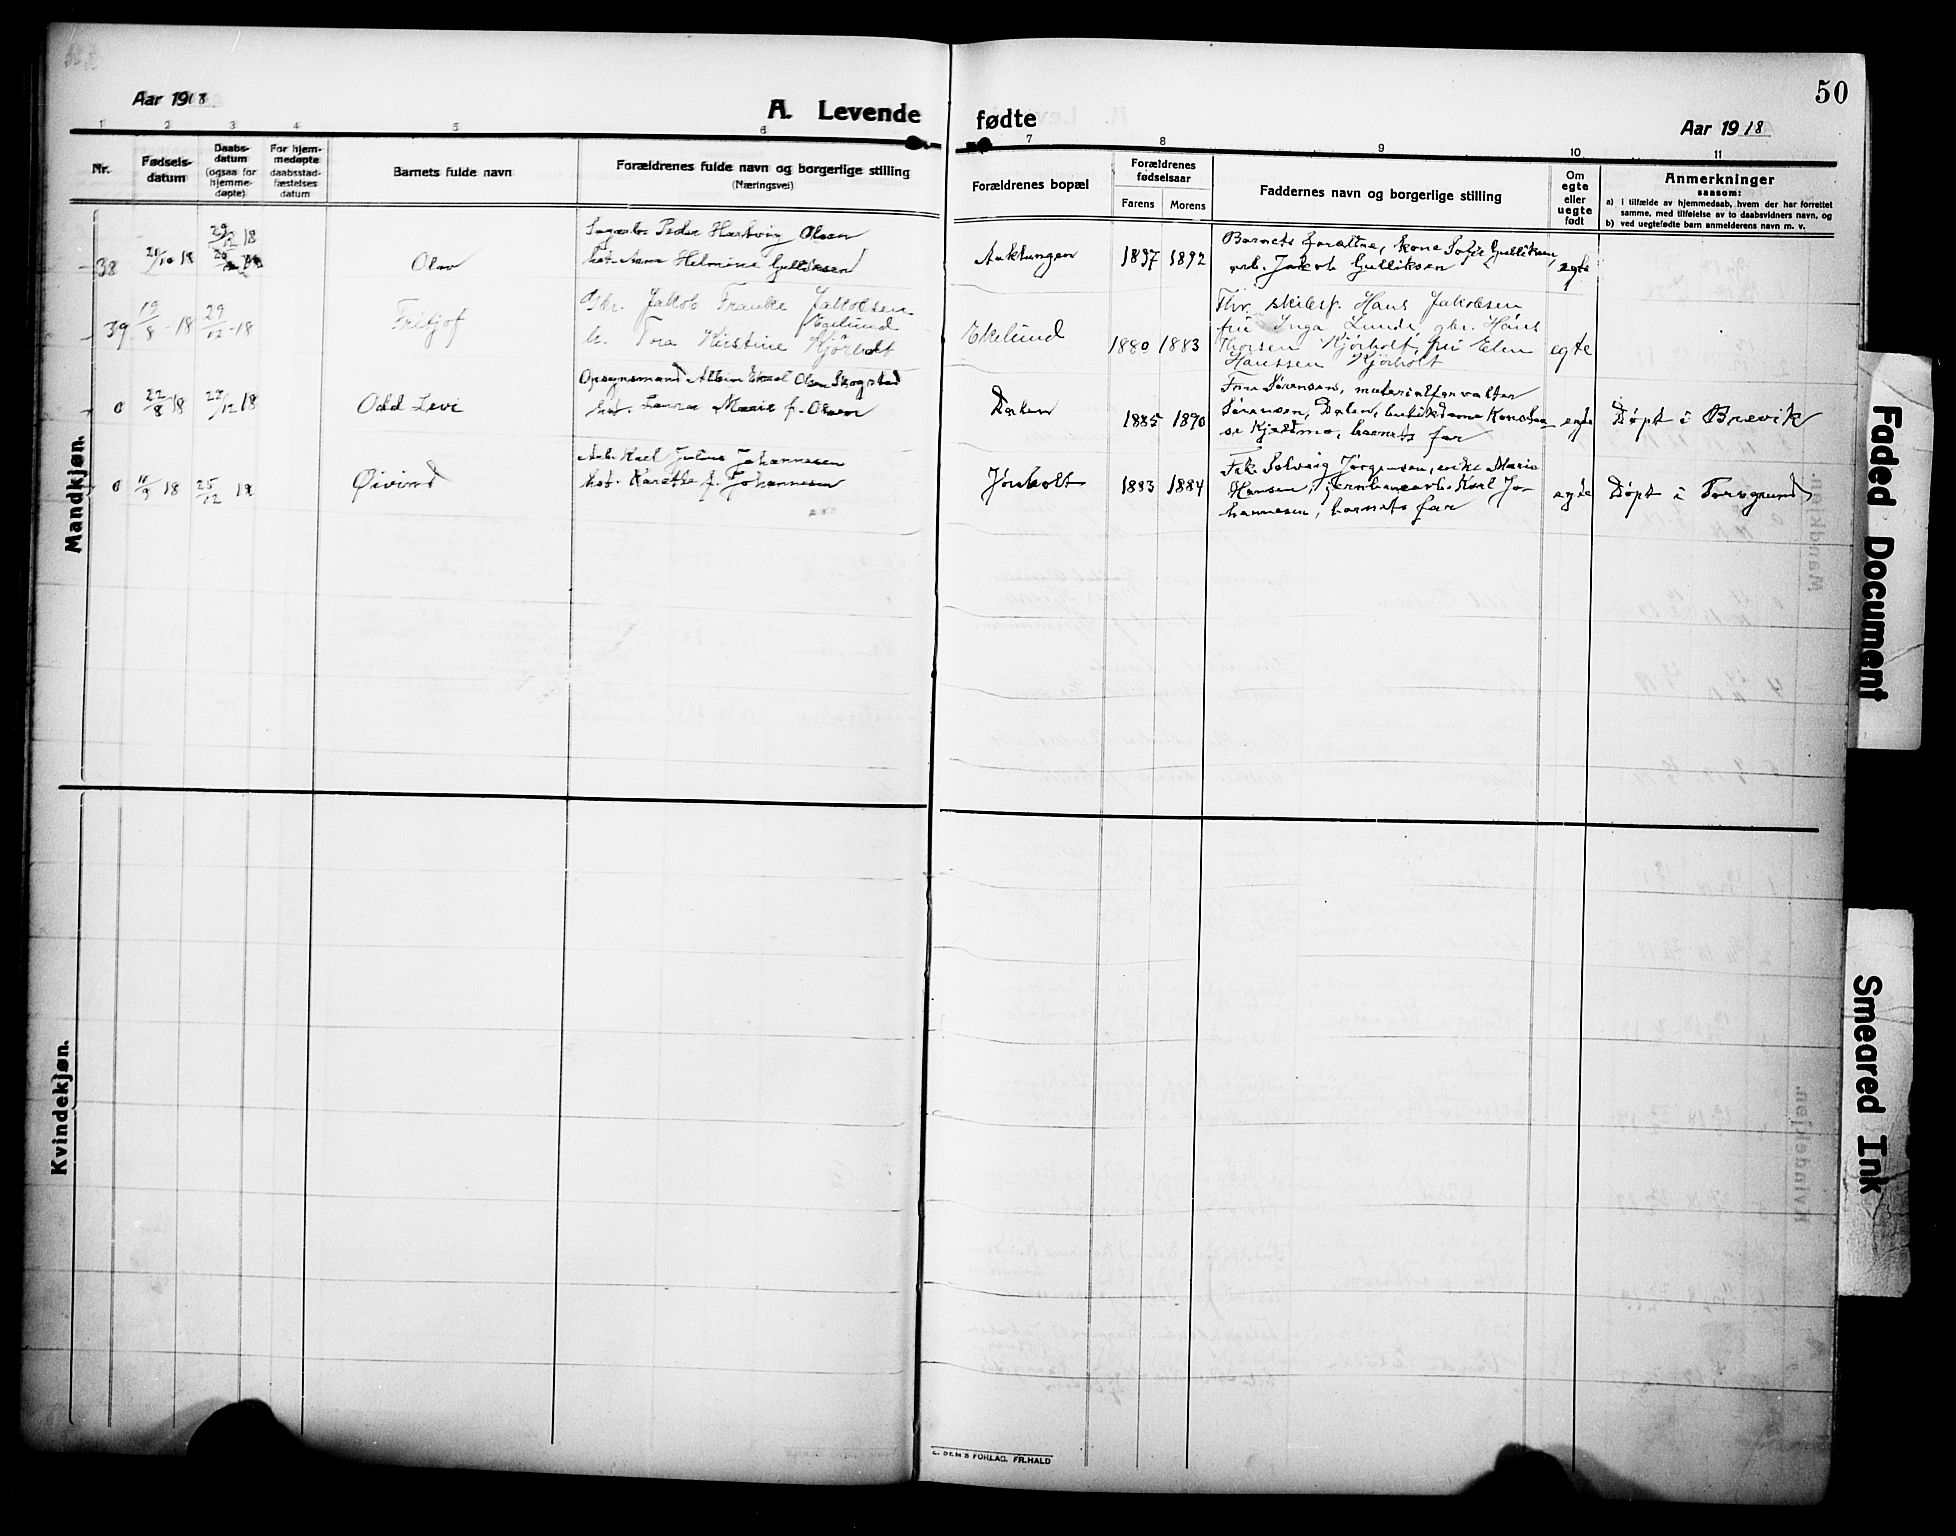 50
Aar 1918
A. Levende
fødte
Aar 1918
1 2 3 4 5 6 7 8 9 10 11
Nr.
Fødsels-
datum
Daabs-
datum
(ogsaa for
hjemme-
døpte)
For hjem-
medøpte
daabsstad-
fæstelses
datum
Barnets fulde navn
Forældrenes fulde navn og borgerlige stilling
(Næringsvei)
Forældrenes bopæl
Forældrenes
fødselsaar
Farens Morens
Faddernes navn og borgerlige stilling
Om
egte
eller
uegte
født
Anmerkninger
saasom:
a) i tilfælde av hjemmedaab, hvem der har forrettet
samme, med tilføielse av to daabsvidners navn, og
b) ved uegtefødte barn anmelderens navn m. v.
Mandkjøn.
38
21/10 18
29/12 18
Olav
Peder Hartvig Olsen
Anna Helmine Gulliksen
1897 1892
Barnets forældre, kone Sofie Gulliksen,
arb. Jakob Gulliksen
egte
39
19/8 - 18
29/12 - 18
Fritjof
Gbr. Jakob Franke Jakobsen
Ekelund
h. Tora Kirstine Kjørholt
Ekelund
1880 1883
Thv. Hans Jakobsen
fru Inga Lunde, gbr. Hans
Thorsen Kjörholt, fru Elen
Hanssen Kjörholt
egte
0
22/8 18
/12 18
Odd Levi
Opsynsmand Olsen Skogstad
hst. Laura Marie f. Olsen
Dalen
1885 1890
Fru Sørensen, materialforvalter
Sørensen, Dalen,
barnets far
egte
Døpt i Brevik
0
11/9 18
25/12 18
Øivind
Arb. Karl Julius Johannesen
hst. Karethe f. Johannesen
Jønholt
1883 1884
Frk. Solveig Jørgensen, Marie
Hansen, jernbanearb. Karl Jo-
hannesen, barnets far
egte
Døpt i Porsgrund
Kvindekjøn.
E. SEM'S FORLAG, FR.HALD
Faded Document
Smeared Ink